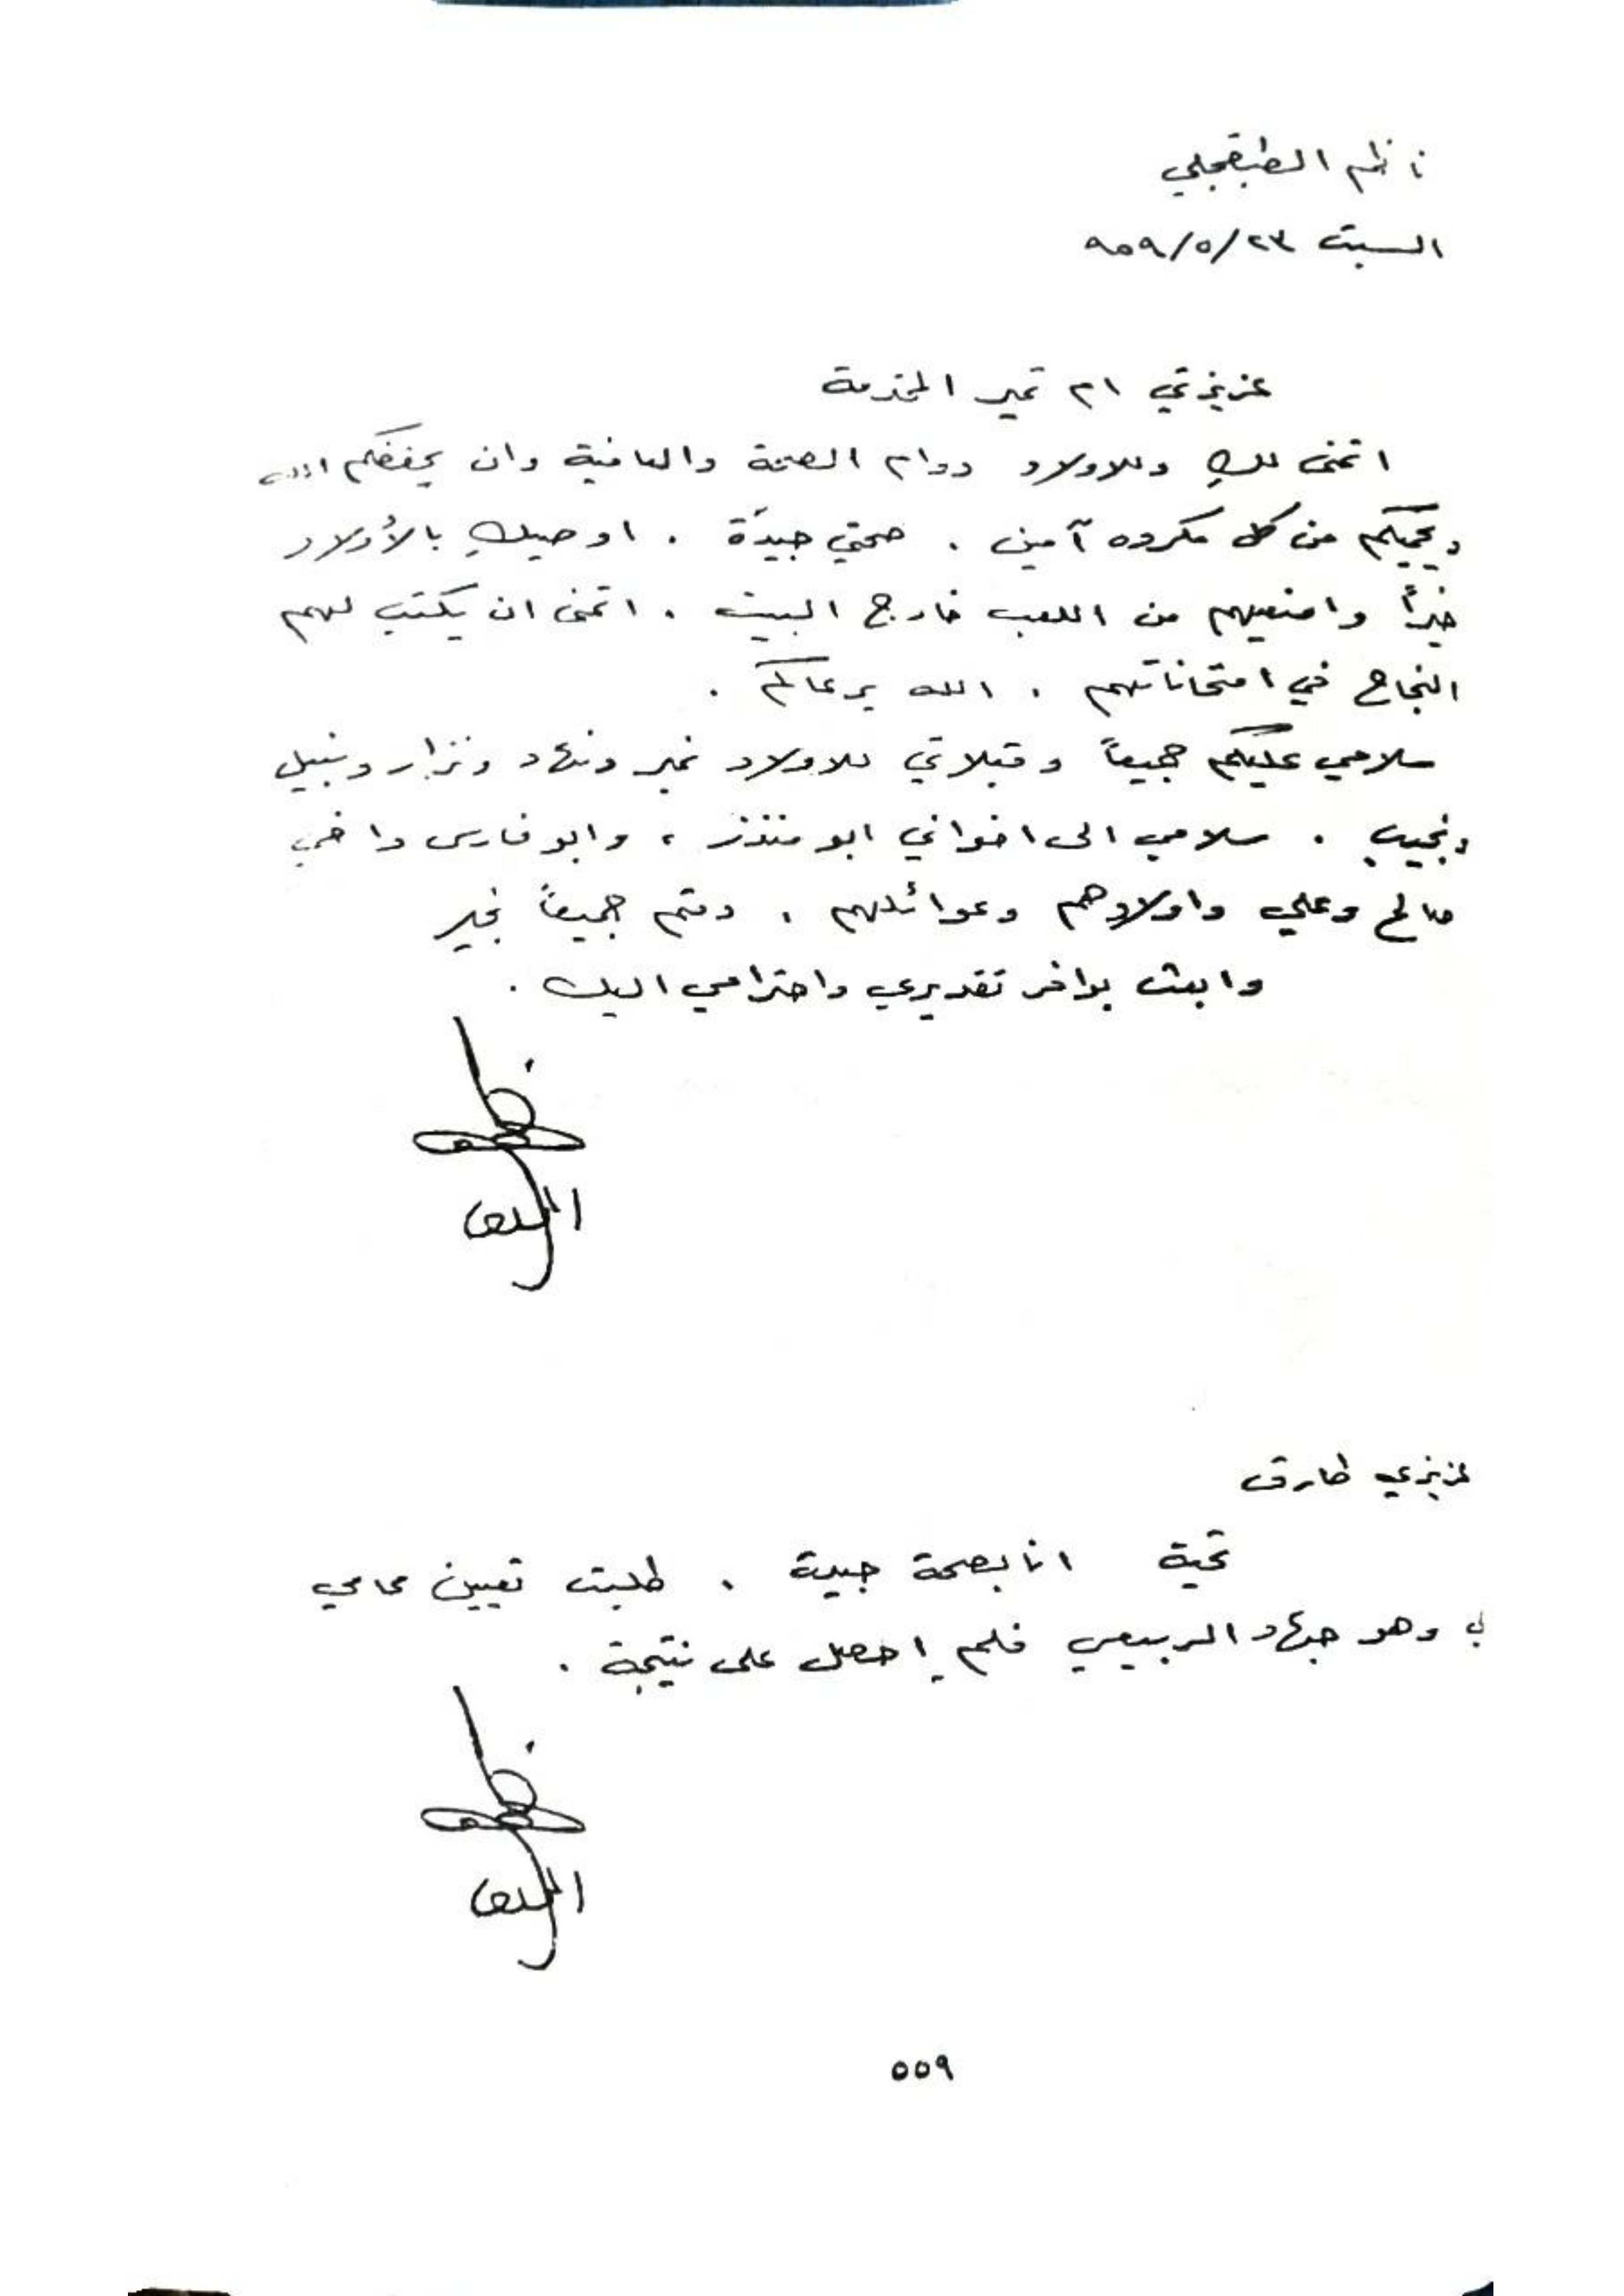 ناظم الطبقجلي
السبت ٢٣/٥/٩٥٩
عزيزتي ام نمير المحترمة
اتمنى لكِ وللاولاد دوام الصحة والعافية وان يحفظكم الله
ويحميكم من كل مكروه آمين . صحتي جيدة . اوصيكِ بالأولاد
خيراً وامنعيهم من اللعب خارج البيت . اتمنى ان يكتب لهم
النجاح في امتحاناتهم . الله يرعاكم .
سلامي عليكم جميعاً وقبلاتي للاولاد نمير ونهاد ونزار ونبيل
ونجيب . سلامي الى اخواني ابو منذر ، وابو فارس واخي
صالح وعلي واولادهم وعوائلهم . دمتم جميعاً بخير
وابعث بوافر تقديري واحترامي اليك .
عزيزي طارق
تحية انا بصحة جيدة . طلبت تعيين محامي
لي وهو جهاد الربيعي فلم احصل على نتيجة .
٥٥٩